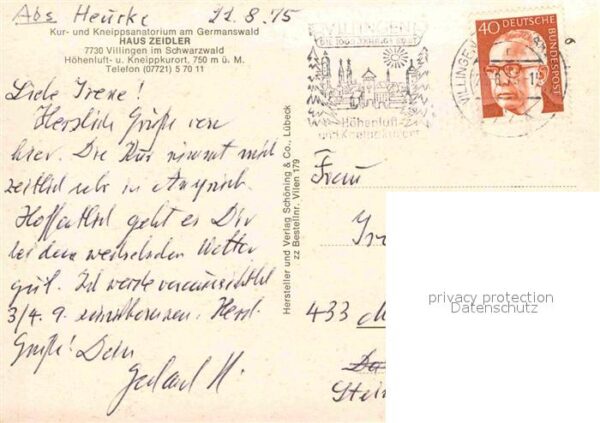 Abs Heucke 22.8.75
Kur- und Kneippsanatorium am Germanswald
HAUS ZEIDLER
7730 Villingen im Schwarzwald
Höhenluft- u. Kneippkurort, 750 m ü. M.
Telefon (07721) 5 70 11
Liebe Irene!
Herzlich Grüße von
hier. Die Kur nimmt mich
zeitlich sehr in Anspruch.
Hoffentlich geht es Dir
bei dem wechselnden Wetter
gut. Ich werde voraussichtlich
3/4. 9. zurückkommen. Herzl.
Grüße! Dein
Gerhard H.
Hersteller und Verlag Schöning & Co., Lübeck
zz Bestellnr. Vilen 179
VILLINGEN
Höhenluft-
und Kneippkurort
VILLINGEN
40 DEUTSCHE BUNDESPOST
6
Frau
433
privacy protection
Datenschutz